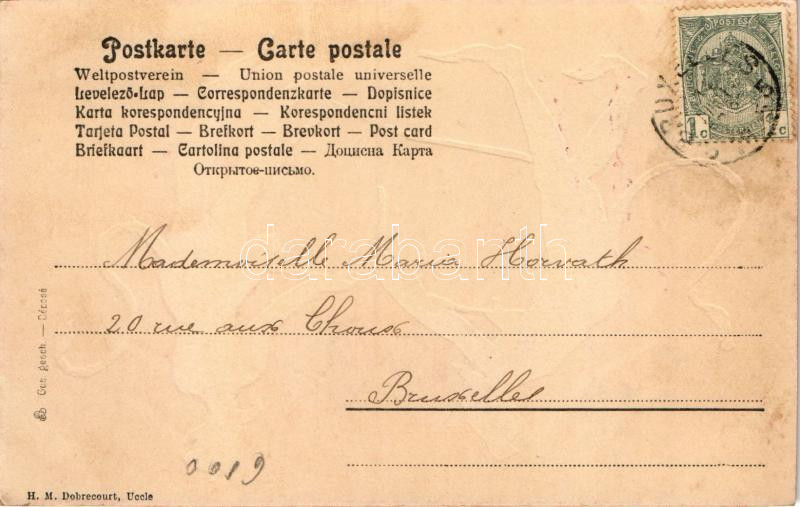 Postkarte — Carte postale
Weltpostverein — Union postale universelle
Levelező-Lap — Correspondenzkarte — Dopisnice
Karta korespondencyjna — Korespondencni listek
Tarjeta Postal — Brefkort — Brevkort — Post card
Briefkaart — Cartolina postale — Доцисна Карта
Открытое-письмо.
POSTES
1c 1c
BRUXELLES
Mademoiselle Maria Horvath
20 rue aux Choux
Bruxelles
Ges. gesch. — Déposé
0019
H. M. Dobrecourt, Uccle
darabanth